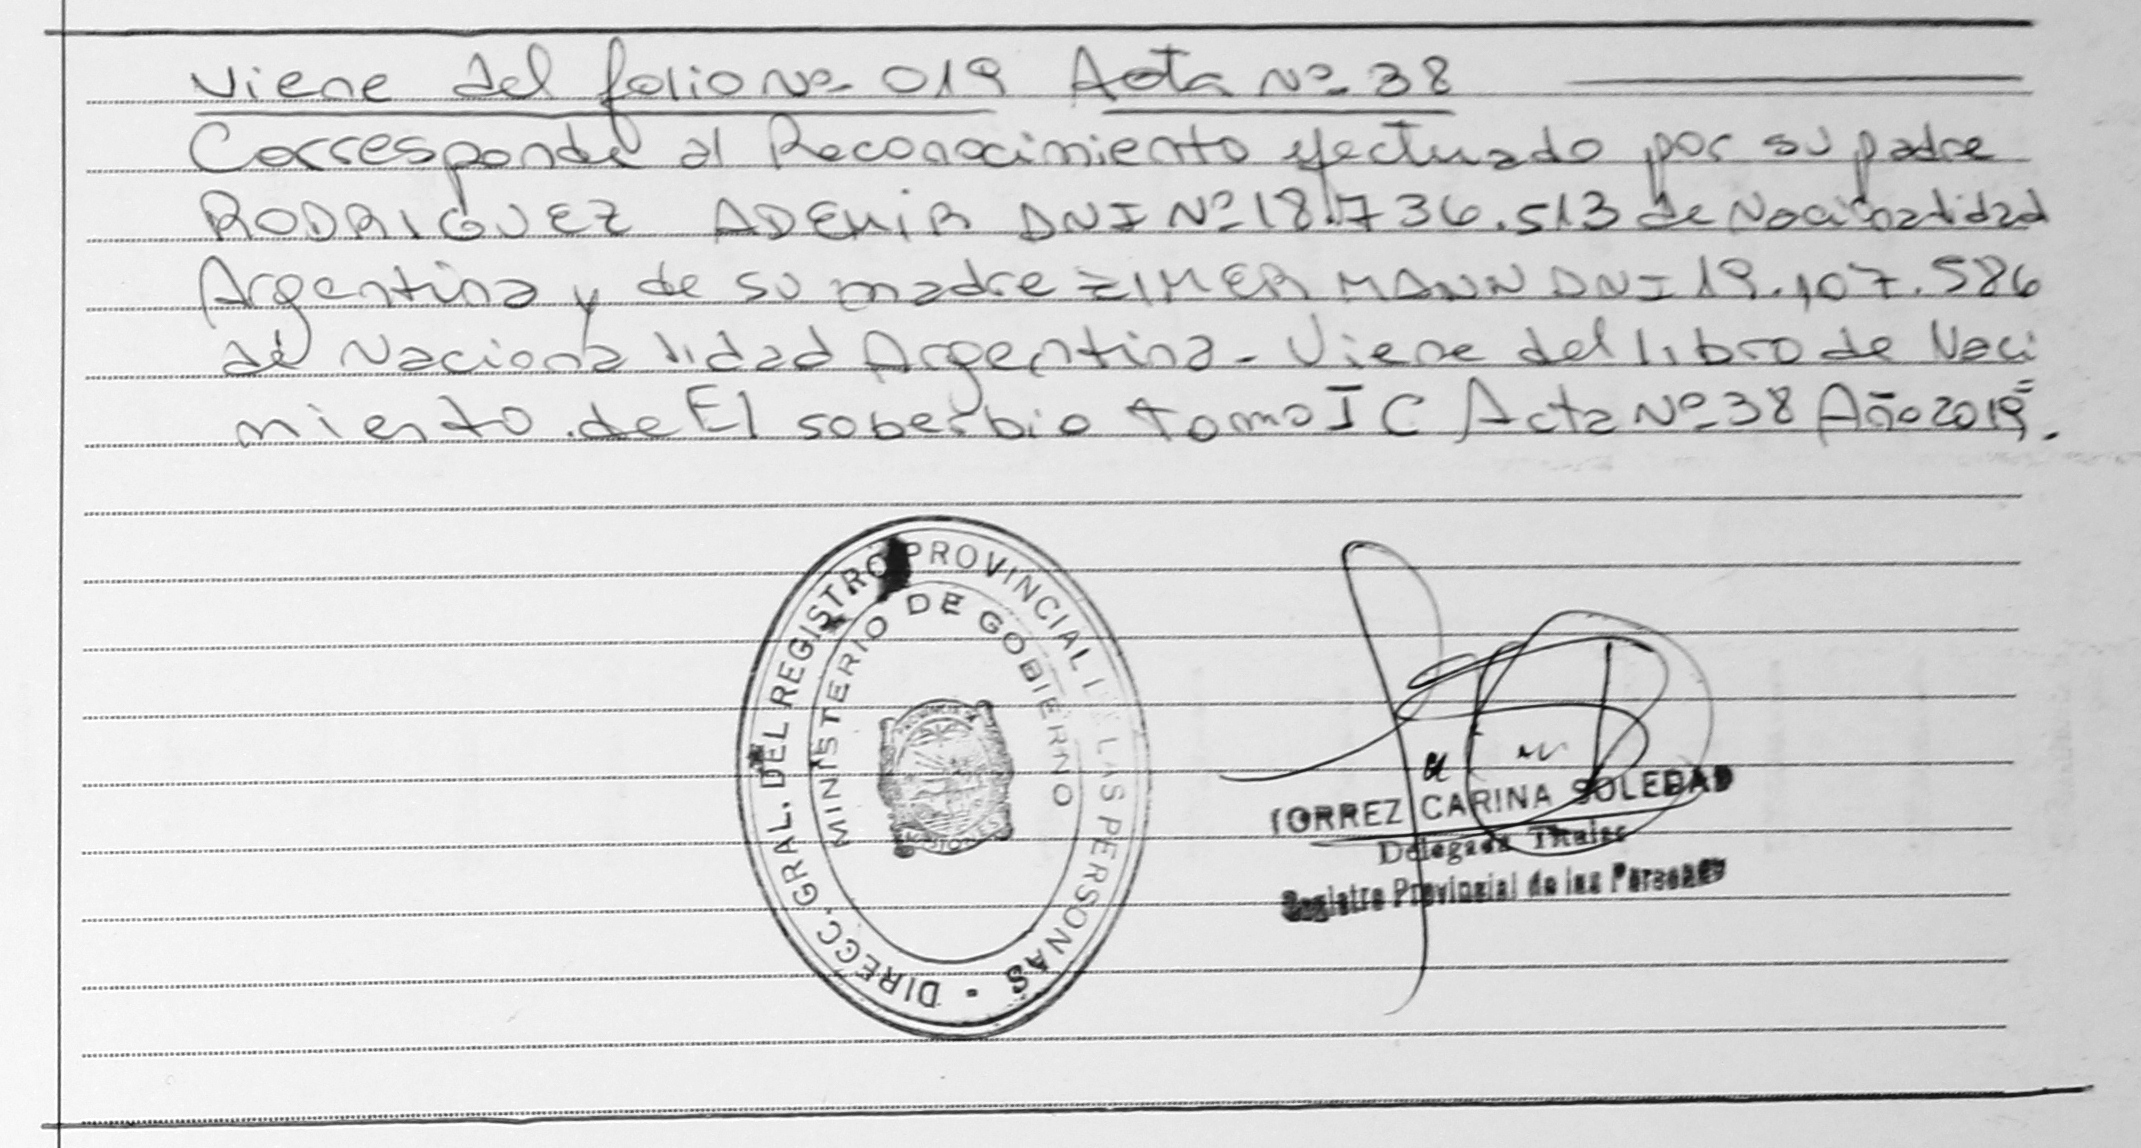 Viene del folio Nº 019 Acta Nº 38
Corresponde al Reconocimiento efectuado por su padre
RODRIGUEZ ADEMIR DNI Nº 18.736.513 de Nacionalidad
Argentina y de su madre ZIMER MANN DNI 19.107.586
de Nacionalidad Argentina - Viene del libro de Naci
miento de El soberbio tomo I C Acta Nº 38 Año 2019.
DIRECC. GRAL. DEL REGISTRO PROVINCIAL DE LAS PERSONAS
MINISTERIO DE GOBIERNO
MISIONES
TORREZ CARINA SOLEDAD
Delegada Titular
Registro Provincial de las Personas